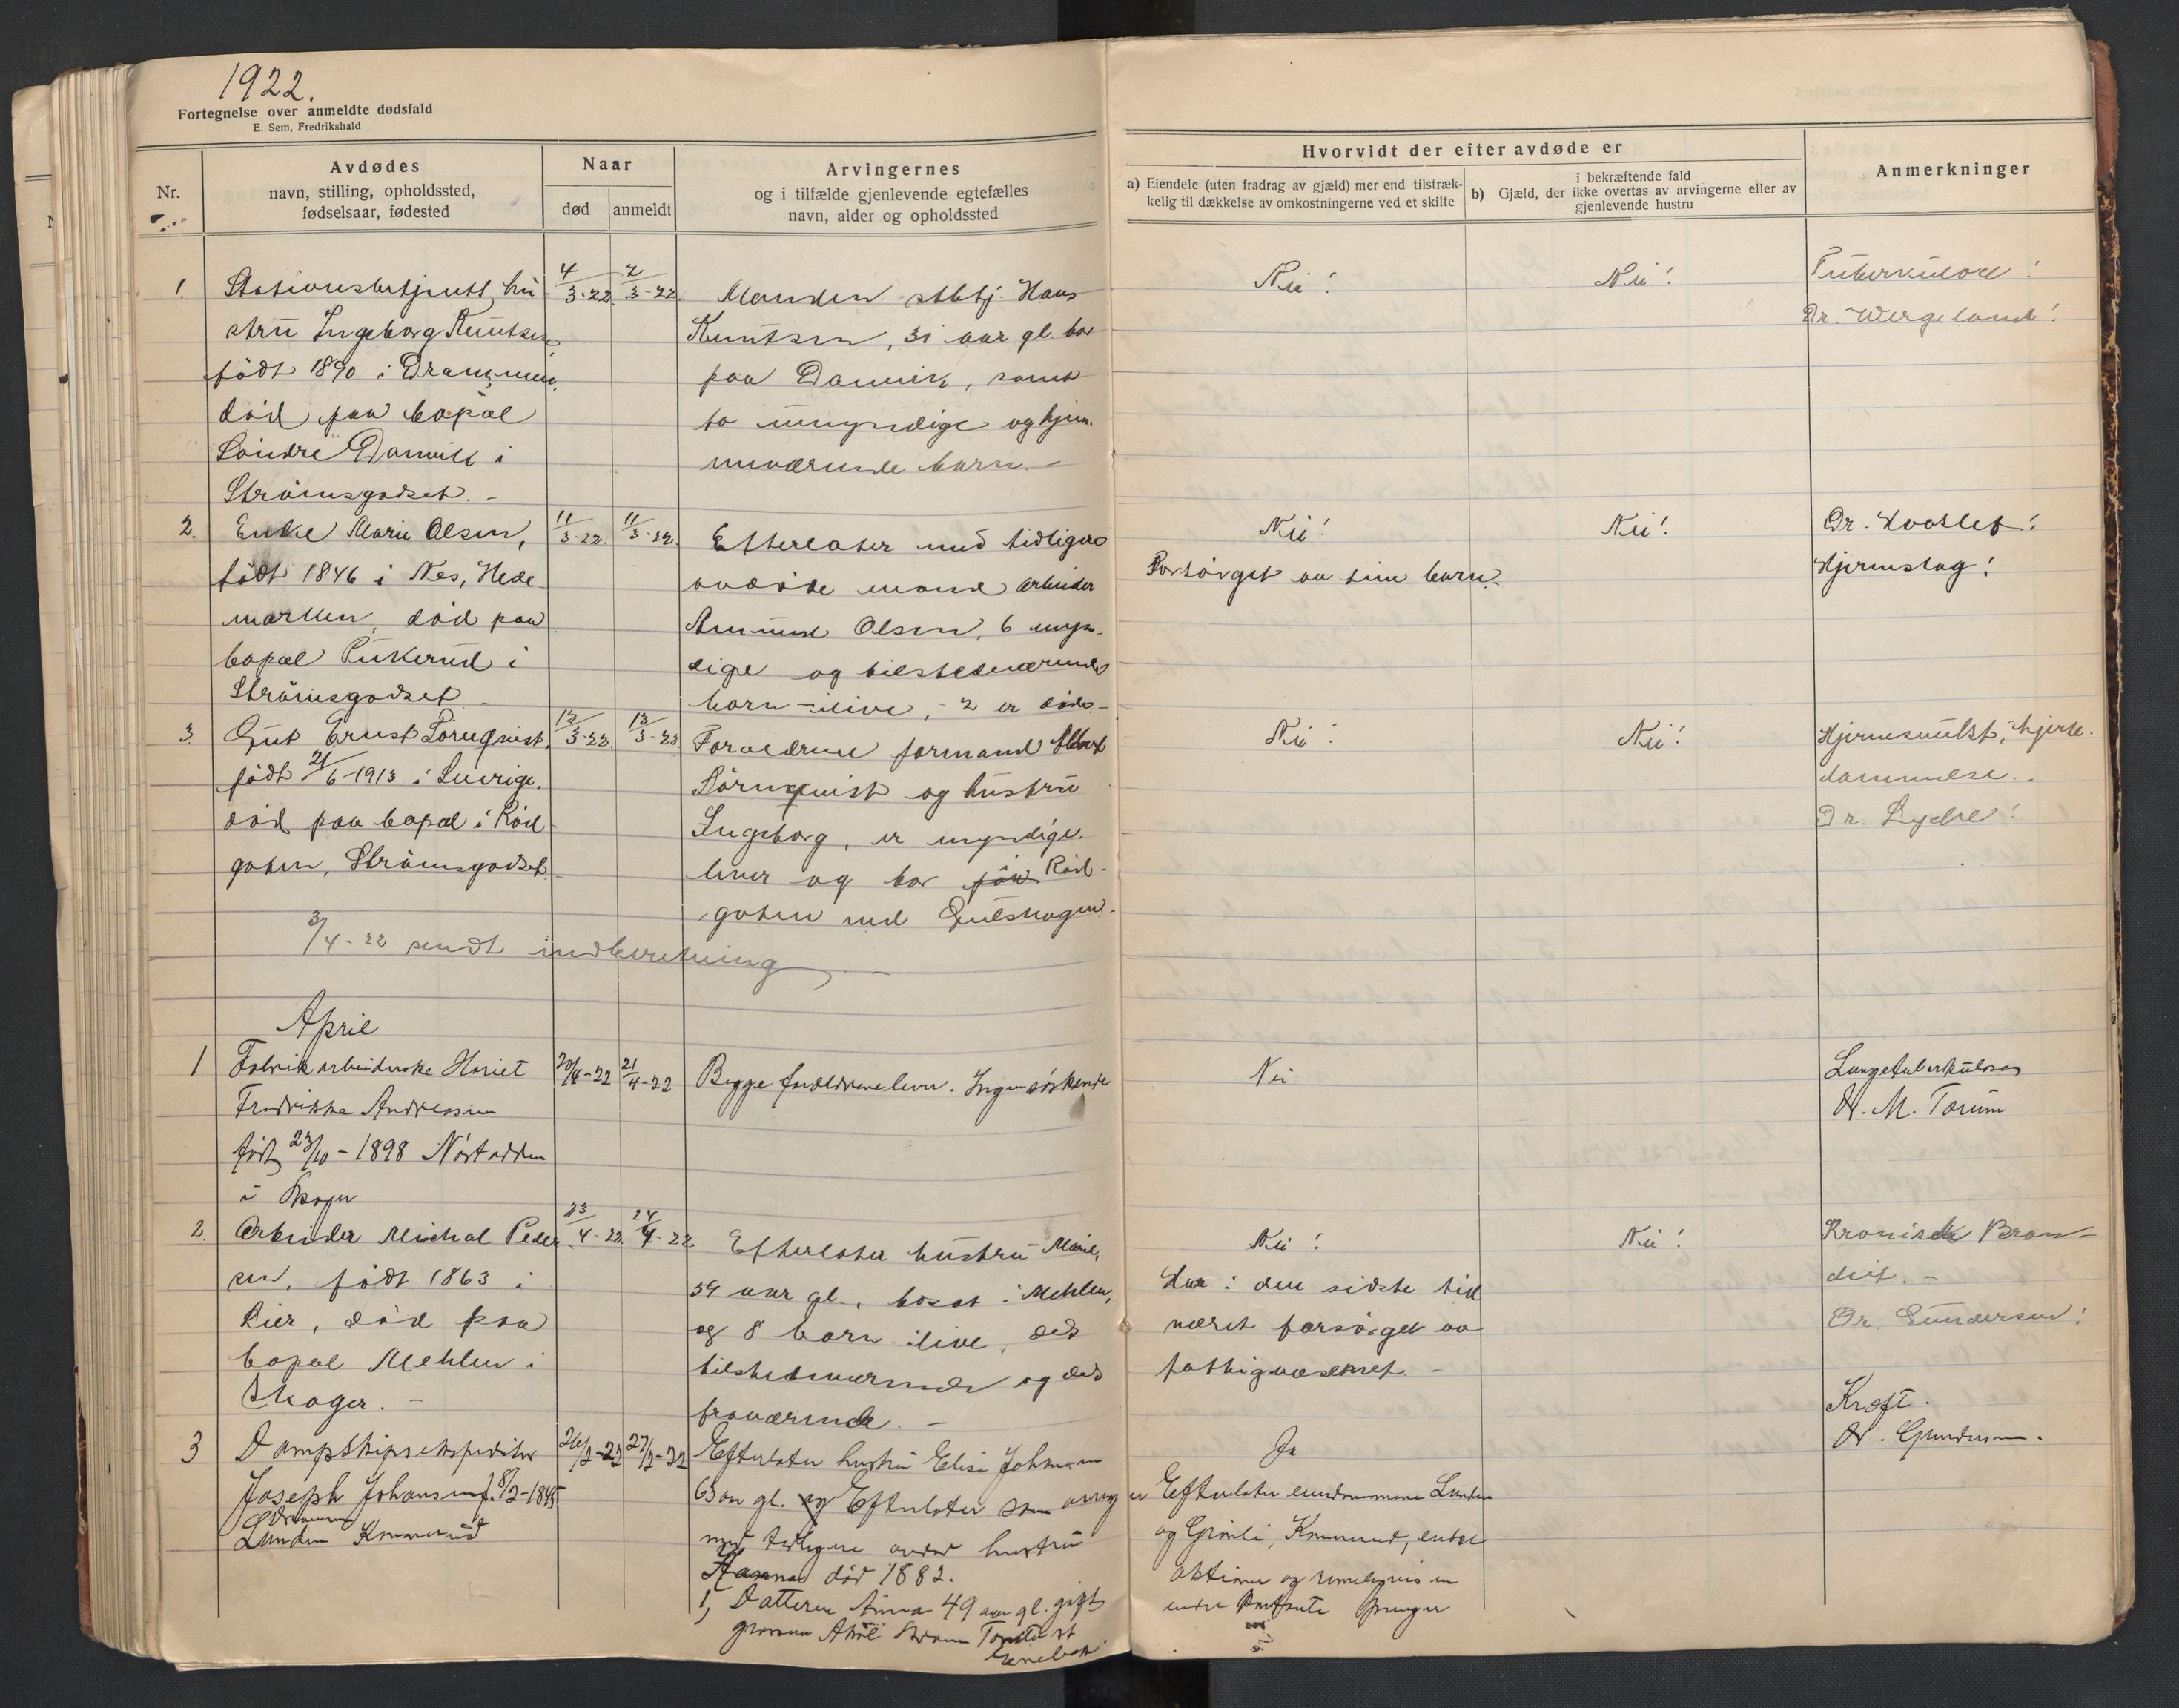 1922.
Fortegnelse over anmeldte dødsfald
E. Sem, Fredrikshald
Nr.
Avdødes
navn, stilling, opholdssted,
fødselsaar, fødested
Naar
død
anmeldt
Arvingernes
og i tilfælde gjenlevende egtefælles
navn, alder og opholdssted
Hvorvidt der efter avdøde er
a) Eiendele (uten fradrag av gjæld) mer end tilstræk-
kelig til dækkelse av omkostningerne ved et skifte
i bekræftende fald
b) Gjæld, der ikke overtas av arvingerne eller av
gjenlevende hustru
Anmerkninger
1.
Stationsbetjent hu
stru Ingeborg Knutsen
født 1890 i Drammen,
död paa bopæl
Söndre Danvik i
Strömsgodset. -
4/3-22.
7/3-22.
Manden stbtj. Hans
Knutsen, 31 aar gl. bor
paa Danvik, samt
to umyndige og hjem.
meværende barn. -
Nei!
Nei!
Tuberkulose!
Dr. Wergeland!
2.
Enke Marie Olsen,
født 1846 i Nes, Hede
marken, död paa
bopæl Pukerud i
Strömsgodset
11/3-22.
11/3-22.
Efterlater med tidligere
avdöde mand arbeider
Amund Olsen, 6 myn-
dige og tilstedeværende
barn ilive, - 2 er döde -
Nei!
Forsörget av sine barn.
Nei!
Dr. Hvoslef!
Hjerneslag!
3.
Gut Ernst Törnqvist,
født 21/6-1913 i Sverige.
död paa bopæl i Röd
gaten, Strömsgodset
13/3-22.
13/3-22
Forældrene formand Albert
Törnqvist og hustru
Ingeborg, er myndige.
lever og bor paa Röd-
gaten ved Gulskogen.
Nei!
Nei!
Hjernesvulst, hjerte.
lammelse.
Dr. Lyche!
3/4-22 sendt indberetning -
April
1
Fabrikarbeiderske Hariet
Fredrikke Andreasen
født 23/10-1898 Nöstodden
i Skoger
20/4-22
21/4-22
Begge forældrene lever. Ingen söskende
Nei
Lungetuberkulose
Dr. M. Torum
2.
Arbeider Michal Peder
sen, født 1863 i
Lier, död paa
bopæl Mehlen i
Skoger. -
23/4-22
24/4-22
Efterlater hustru Marie,
59 aar gl., bosat i Mehlen,
og 8 barn ilive, dels
tilstedeværende og dels
fraværende. -
Nei!
Har i den sidste tid
været forsörget av
fattigvæsenet. -
Nei!
Kronisk Bron-
chit. -
Dr. Gundersen!
3
Dampskipsekspeditør
Joseph Johansen f. 8/2-1845
Drammen
Lunden Konnerud
26/2-22
27/2-22
Efterlater hustru Elise Johansen
63 aar gl. og Efterlater som arvinger
med tidligere avdød hustru
Hanna död 1882.
1, Datteren Anna 49 aar gl. gift
Ja
Efterlater eiendommene Lunden
og Grönli, Konnerud, endel
aktier og
endel penger
Kræft.
Dr. Gundersen.